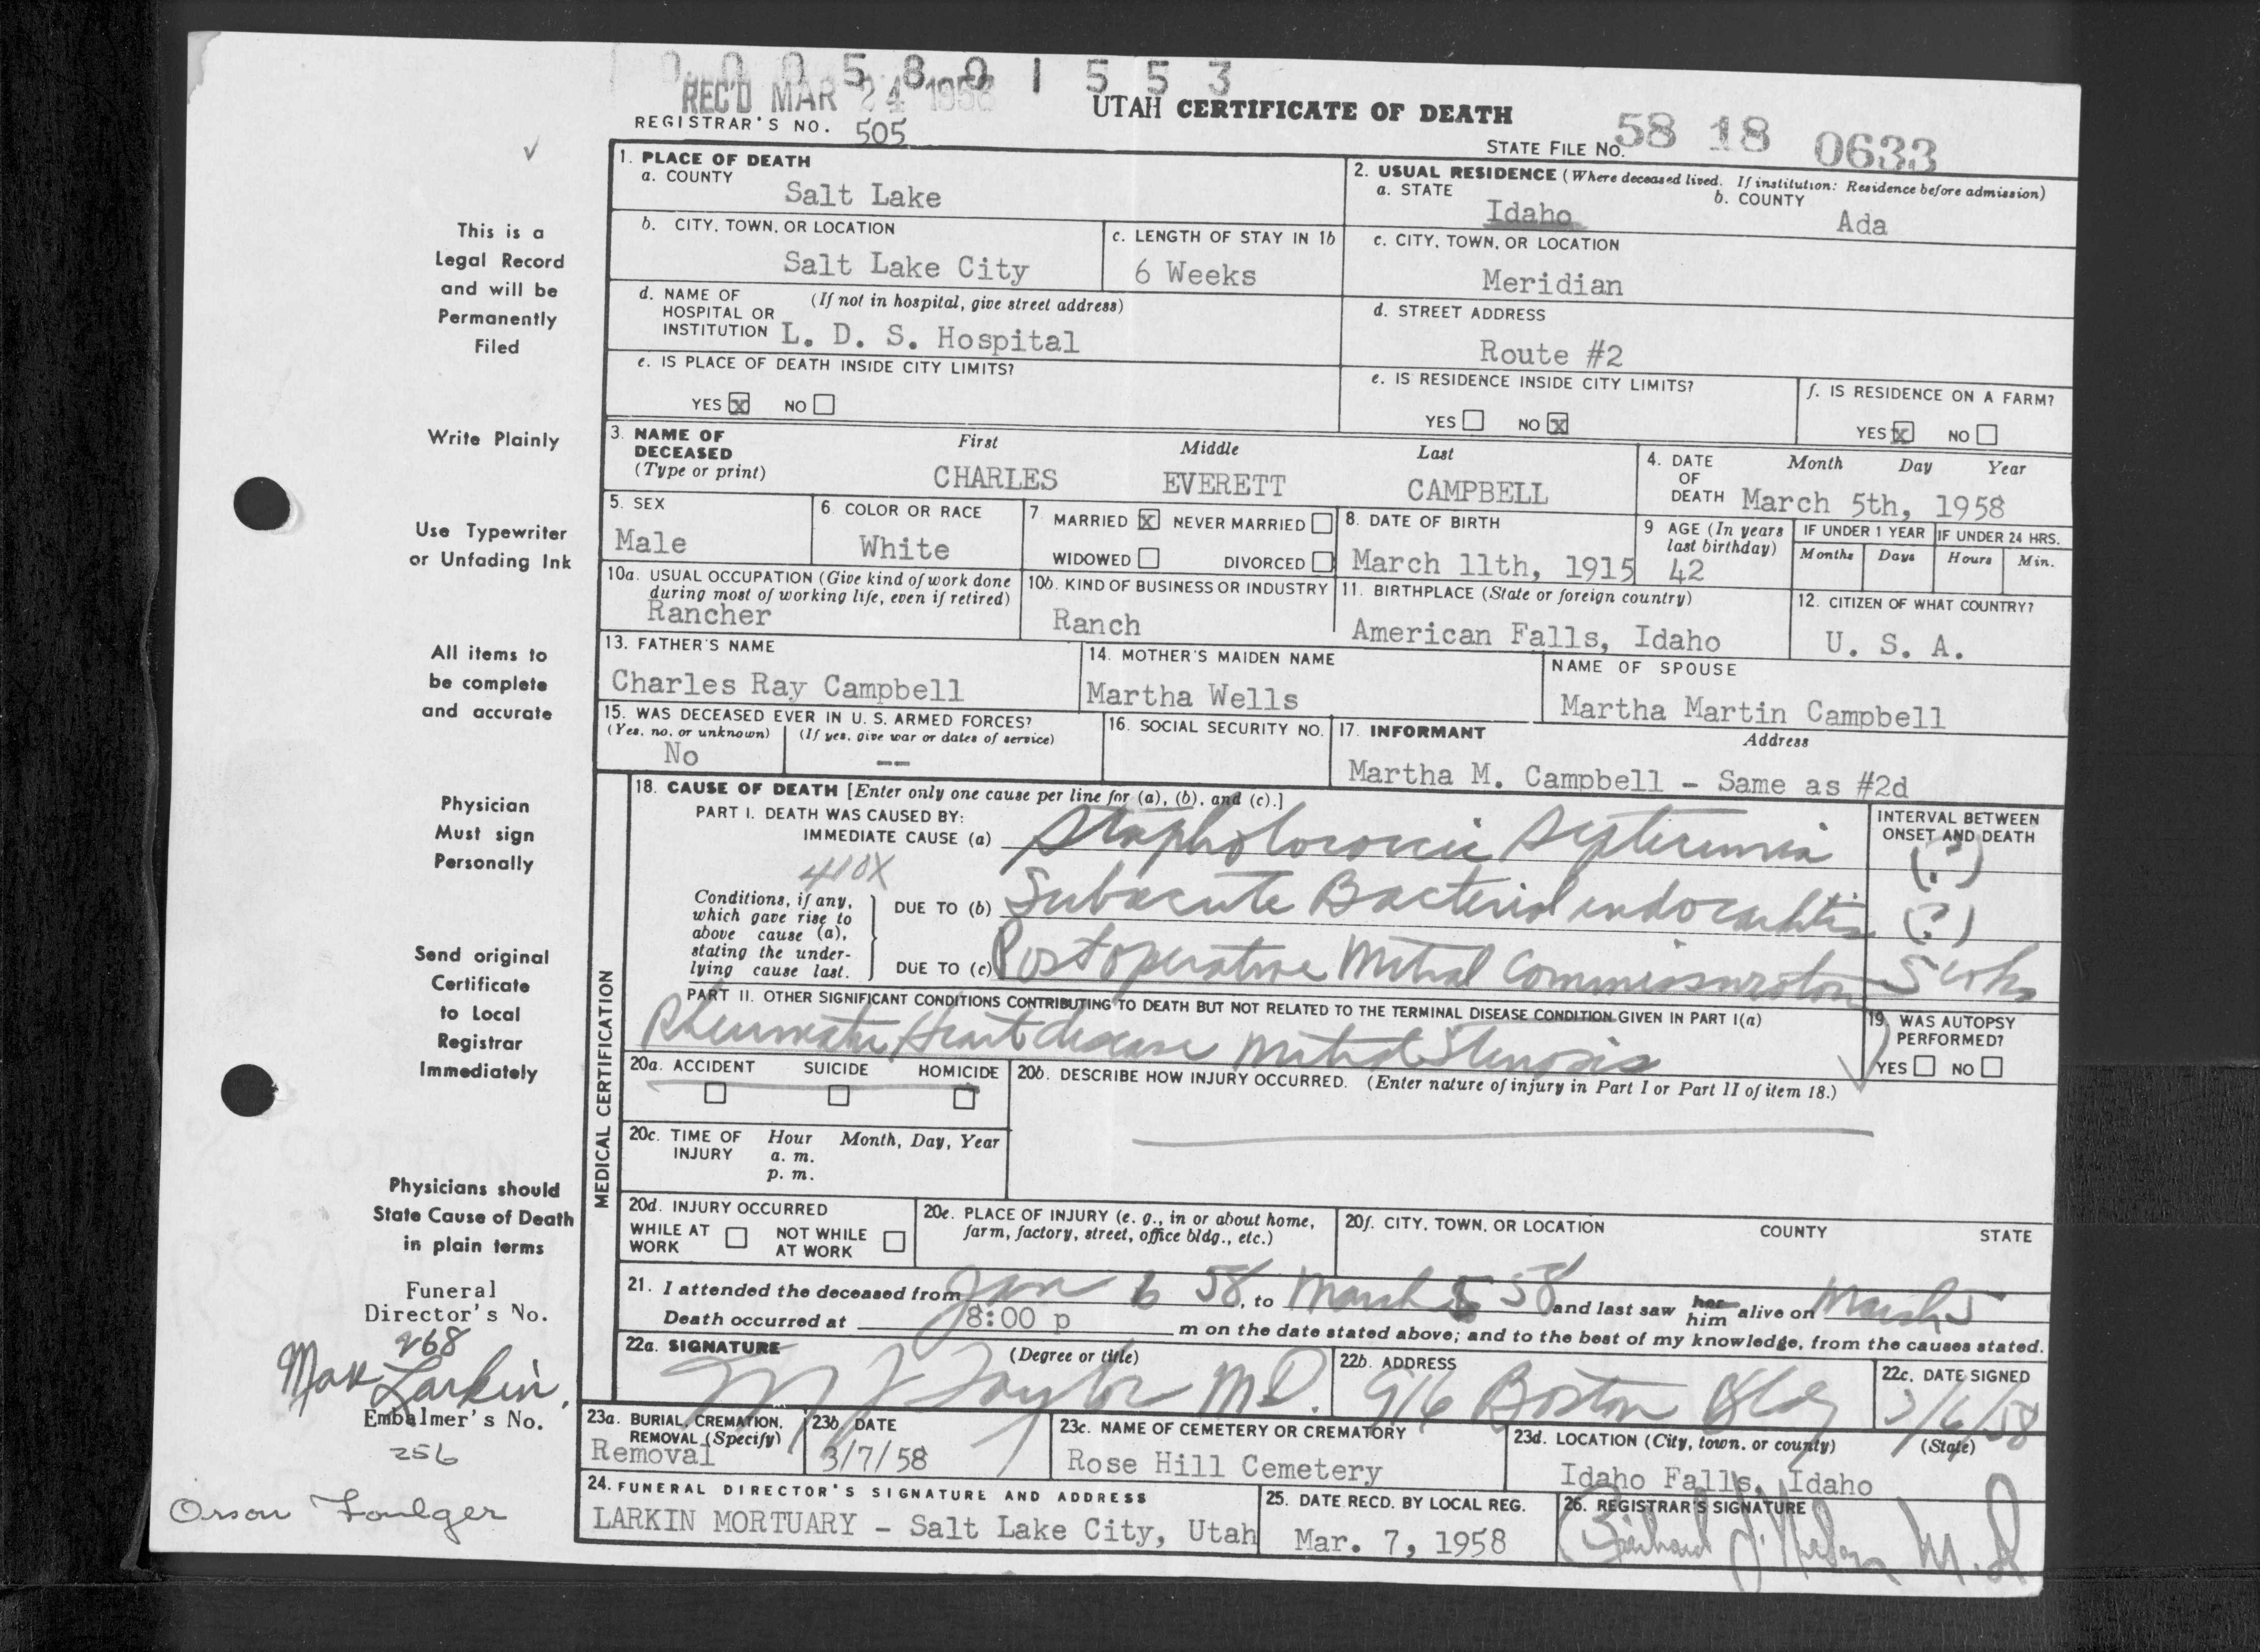 1 0 0 0 5 8 0 1 5 5 3
REC'D MAR 24 1958
UTAH CERTIFICATE OF DEATH
REGISTRAR'S NO. 505
STATE FILE NO. 58 18 0633
1. PLACE OF DEATH
a. COUNTY
Salt Lake
2. USUAL RESIDENCE (Where deceased lived. If institution: Residence before admission)
a. STATE Idaho b. COUNTY Ada
b. CITY, TOWN, OR LOCATION
Salt Lake City
c. LENGTH OF STAY IN 1b
6 Weeks
c. CITY, TOWN, OR LOCATION
Meridian
d. NAME OF HOSPITAL OR INSTITUTION (If not in hospital, give street address)
L. D. S. Hospital
d. STREET ADDRESS
Route #2
e. IS PLACE OF DEATH INSIDE CITY LIMITS?
YES x NO
e. IS RESIDENCE INSIDE CITY LIMITS?
YES NO x
f. IS RESIDENCE ON A FARM?
YES x NO
3. NAME OF DECEASED (Type or print)
First Middle Last
CHARLES EVERETT CAMPBELL
4. DATE OF DEATH Month Day Year
March 5th, 1958
5. SEX
Male
6. COLOR OR RACE
White
7. MARRIED x NEVER MARRIED
WIDOWED DIVORCED
8. DATE OF BIRTH
March 11th, 1915
9 AGE (In years last birthday)
42
IF UNDER 1 YEAR IF UNDER 24 HRS.
Months Days Hours Min.
10a. USUAL OCCUPATION (Give kind of work done during most of working life, even if retired)
Rancher
10b. KIND OF BUSINESS OR INDUSTRY
Ranch
11. BIRTHPLACE (State or foreign country)
American Falls, Idaho
12. CITIZEN OF WHAT COUNTRY?
U. S. A.
13. FATHER'S NAME
Charles Ray Campbell
14. MOTHER'S MAIDEN NAME
Martha Wells
NAME OF SPOUSE
Martha Martin Campbell
15. WAS DECEASED EVER IN U. S. ARMED FORCES?
(Yes, no, or unknown) (If yes, give war or dates of service)
No --
16. SOCIAL SECURITY NO.
17. INFORMANT Address
Martha M. Campbell - Same as #2d
MEDICAL CERTIFICATION
18. CAUSE OF DEATH [Enter only one cause per line for (a), (b), and (c).]
PART I. DEATH WAS CAUSED BY:
IMMEDIATE CAUSE (a) Stapholococcic Septicemia
INTERVAL BETWEEN ONSET AND DEATH
(?)
410X
Conditions, if any, which gave rise to above cause (a), stating the underlying cause last.
DUE TO (b) Subacute Bacterial endocarditis (?)
DUE TO (c) Postoperative Mitral Commissurotomy 5 wks
PART II. OTHER SIGNIFICANT CONDITIONS CONTRIBUTING TO DEATH BUT NOT RELATED TO THE TERMINAL DISEASE CONDITION GIVEN IN PART I(a)
Rheumatic Heart disease Mitral Stenosis
19. WAS AUTOPSY PERFORMED?
YES NO
20a. ACCIDENT SUICIDE HOMICIDE
20b. DESCRIBE HOW INJURY OCCURRED. (Enter nature of injury in Part I or Part II of item 18.)
20c. TIME OF INJURY Hour Month, Day, Year
a. m.
p. m.
20d. INJURY OCCURRED
WHILE AT WORK NOT WHILE AT WORK
20e. PLACE OF INJURY (e. g., in or about home, farm, factory, street, office bldg., etc.)
20f. CITY, TOWN, OR LOCATION COUNTY STATE
21. I attended the deceased from Jan 6 58, to March 5 58 and last saw her him alive on March 5
Death occurred at 8:00 p m on the date stated above; and to the best of my knowledge, from the causes stated.
22a. SIGNATURE (Degree or title)
Taylor M.D.
22b. ADDRESS
916 Boston Bldg
22c. DATE SIGNED
3/6/58
23a. BURIAL, CREMATION, REMOVAL (Specify)
Removal
23b. DATE
3/7/58
23c. NAME OF CEMETERY OR CREMATORY
Rose Hill Cemetery
23d. LOCATION (City, town, or county) (State)
Idaho Falls, Idaho
24. FUNERAL DIRECTOR'S SIGNATURE AND ADDRESS
LARKIN MORTUARY - Salt Lake City, Utah
25. DATE RECD. BY LOCAL REG.
Mar. 7, 1958
26. REGISTRAR'S SIGNATURE
M.D
This is a
Legal Record
and will be
Permanently
Filed
Write Plainly
Use Typewriter
or Unfading Ink
All items to
be complete
and accurate
Physician
Must sign
Personally
Send original
Certificate
to Local
Registrar
Immediately
Physicians should
State Cause of Death
in plain terms
Funeral
Director's No.
268
Max Larkin,
Embalmer's No.
256
Orson Foulger